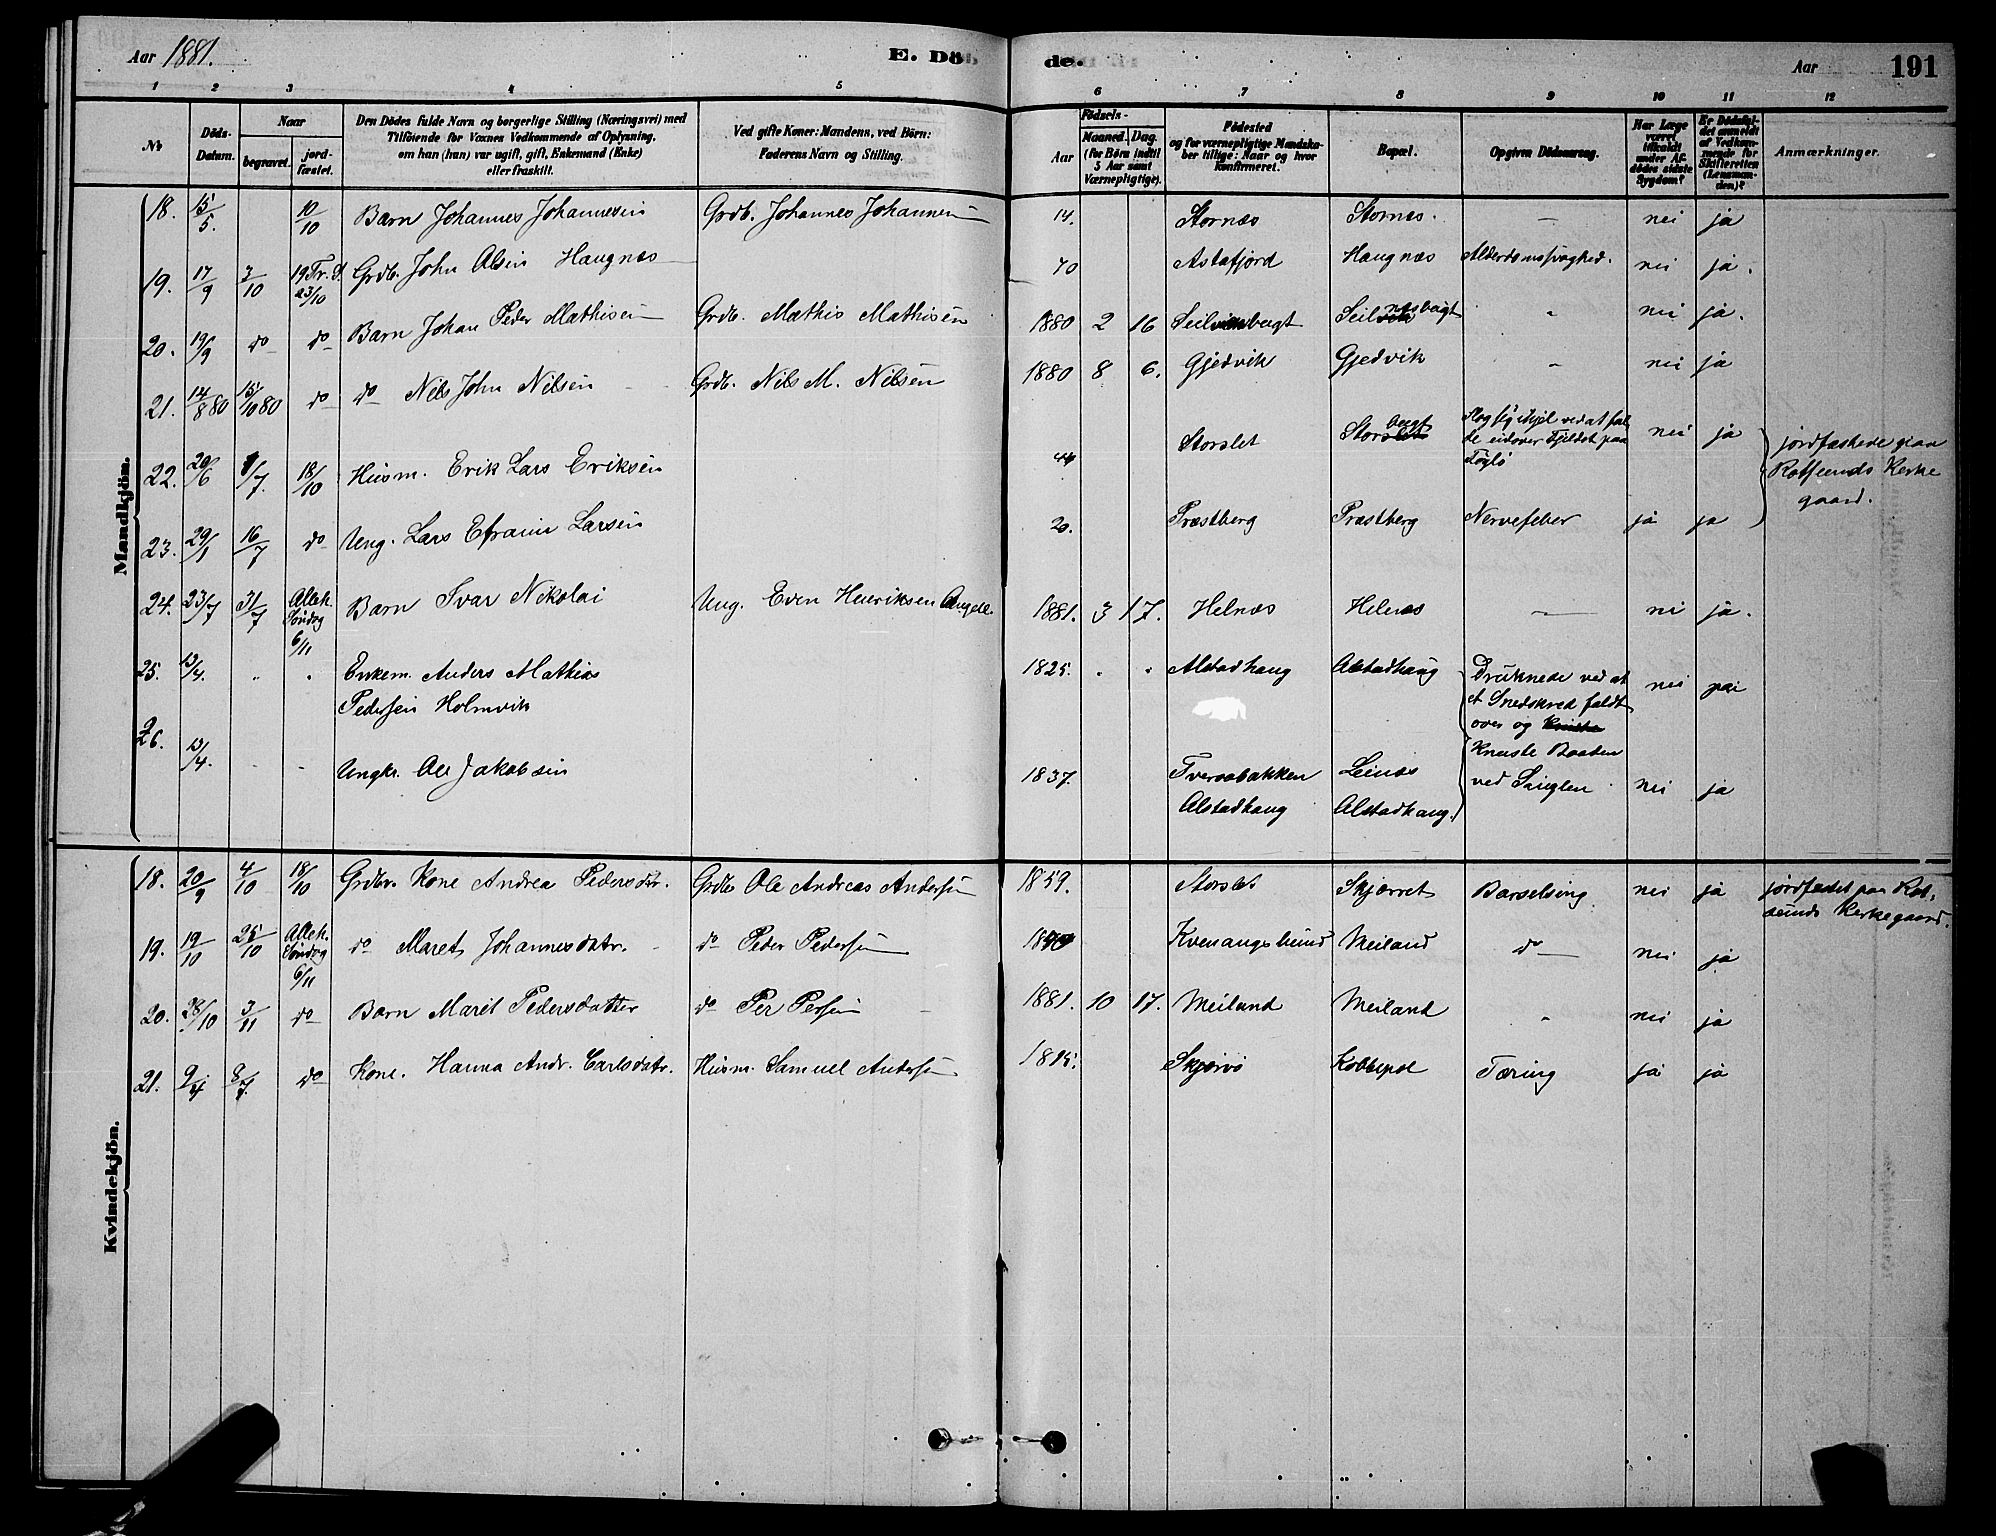 Aar 1881. E. Döde. Aar 191
1 2 3 4 5 6 7 8 9 10 11 12
No
Döds-Datum.
Naar
begravet.
jordfæstet.
Den Dödes fulde Navn og borgerlige Stilling (Næringsvei) med
Tilföiende for Voxnes Vedkommende af Oplysning,
om han (hun) var ugift, gift, Enkemand (Enke)
eller fraskilt.
Ved gifte Koner: Mandens, ved Börn:
Faderens Navn og Stilling.
Födsels-
Aar
Maaned. Dag.
(for Börn indtil
5 Aar samt
Værnepligtige).
Födested
og for værnepligtige Mandskaber tillige: Naar og hvor
konfirmeret.
Bopæl.
Opgiven Dödsaarsag.
Har Læge
været
tilkaldt
under Afdödes sidste
Sygdom?
Er Dödsfaldet anmeldt
af Vedkommende for
Skifteretten
(Lensmanden)?
Anmærkninger.
Mandkjön.
18. 15/5. 10/10 Barn Johannes Johannesen Grdb. Johannes Johannesen 14. Stornæs Stornes. - nei ja
19. 17/9 3/10 23/10 Grdb. John Olsen Haugnæs 70 Astafjord Haugnæs Alderdomssvaghed. nei ja.
20. 19/9 do do Barn Johan Peder Mathisen Grdb. Mathis Mathisen 1880 2 16 - nei ja.
21. 14/8 80 15/10 80 do do Nils John Nilsen Grdb. Nils M. Nilsen 1880 8 6. Gjedvik Gjedvik - nei ja
22. 20/6 1/7. 18/10 Husm. Erik Lars Eriksen 44 Storslet Slog sig ihjel ved at falde udover Fjeldet paa nei ja
jordfæstede paa
Rotsunds Kirke
gaard.
23. 29/1 16/7 do Ung. Lars Efraim Larsen 20. Præstberg Præstberg Nervefeber ja ja
24. 23/7 31/7 Alleh. Søndag 6/11 Barn Ivar Nikolai Ung. Even Henriksen Angell 1881. 3 17. Helnæs Helnæs - nei ja.
25. 13/4. " " Enkem. Anders Mathias
Pedersen Holmvik 1825. " " Alstadhaug Alstadhaug nei
Druknede ved at
et Snedskred faldt
over og
knuste Baaden
ved
26. 13/4. - - Ungkr. Ole Jakobsen 1837. Tveraabakken
Alstadhaug Leines
Alstadhaug. nei ja
Kvindekjön.
18. 20/9 4/10 18/10 Grdbr. Kone Andrea Pedersdtr. Grdbr Ole Andreas Andersen 1859. Storslet Skjærret Barselseng nei ja jordfæstet paa Rotsunds Kirkegaard.
19. 19/10 25/10 Alleh. Søndag 6/11 do Maret Johannesdatr. do Peder Pedersen Kvenangssund Meiland do nei ja
20. 28/10 3/11 do Barn Marit Pedersdatter do Per Persen 1881. 10 17. Meiland Meiland " nei ja
21. 8/7. do Kone. Hanna Andr. Carlsdatr. Husm. Samuel Andersen Skjervö Tæring ja ja